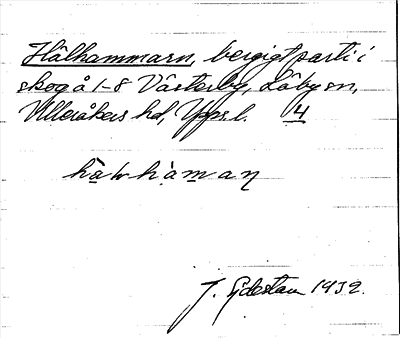 Hålhammarn, bergigt parti i
skog å 1-8 Västerby, Läby sn,
Ulleråkers hd, Upps. l. 4
J. Gidestam 1932.